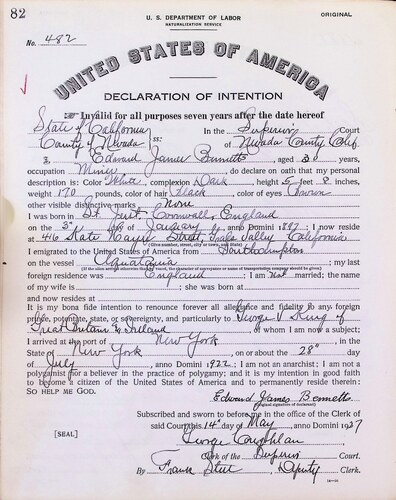 82
U. S. DEPARTMENT OF LABOR
NATURALIZATION SERVICE
ORIGINAL
No. 482
UNITED STATES OF AMERICA
DECLARATION OF INTENTION
Invalid for all purposes seven years after the date hereof
State of California
County of Nevada ss: In the Superior Court
of Nevada County Calif.
I, Edward James Bennetts, aged 30 years,
occupation Miner, do declare on oath that my personal
description is: Color White, complexion Dark, height 5 feet 8 inches,
weight 170 pounds, color of hair Black, color of eyes Brown
other visible distinctive marks None
I was born in St. Just Cornwall, England
on the day of January, anno Domini 1897; I now reside
at 416 Kate Hayes Street, Grass Valley California
(Give number, street, city or town, and state)
I emigrated to the United States of America from Southampton
on the vessel Aquatania; my last
(If the alien arrived otherwise than by vessel, the character of conveyance or name of transportation company should be given)
foreign residence was England; I am not married; the name
of my wife is; she was born at
and now resides at
It is my bona fide intention to renounce forever all allegiance and fidelity to any foreign
prince, potentate, state, or sovereignty, and particularly to George V King of
Great Britain & Ireland, of whom I am now a subject;
I arrived at the port of New York, in the
State of New York, on or about the 28" day
of July, anno Domini 1922; I am not an anarchist; I am not a
polygamist nor a believer in the practice of polygamy; and it is my intention in good faith
to become a citizen of the United States of America and to permanently reside therein:
SO HELP ME GOD.
Edward James Bennetts
(Original signature of declarant)
Subscribed and sworn to before me in the office of the Clerk of
said Court this 14" day of May, anno Domini 1927
[SEAL]
George Coughlan
Clerk of the Superior Court.
By Frank Steel, Deputy Clerk.